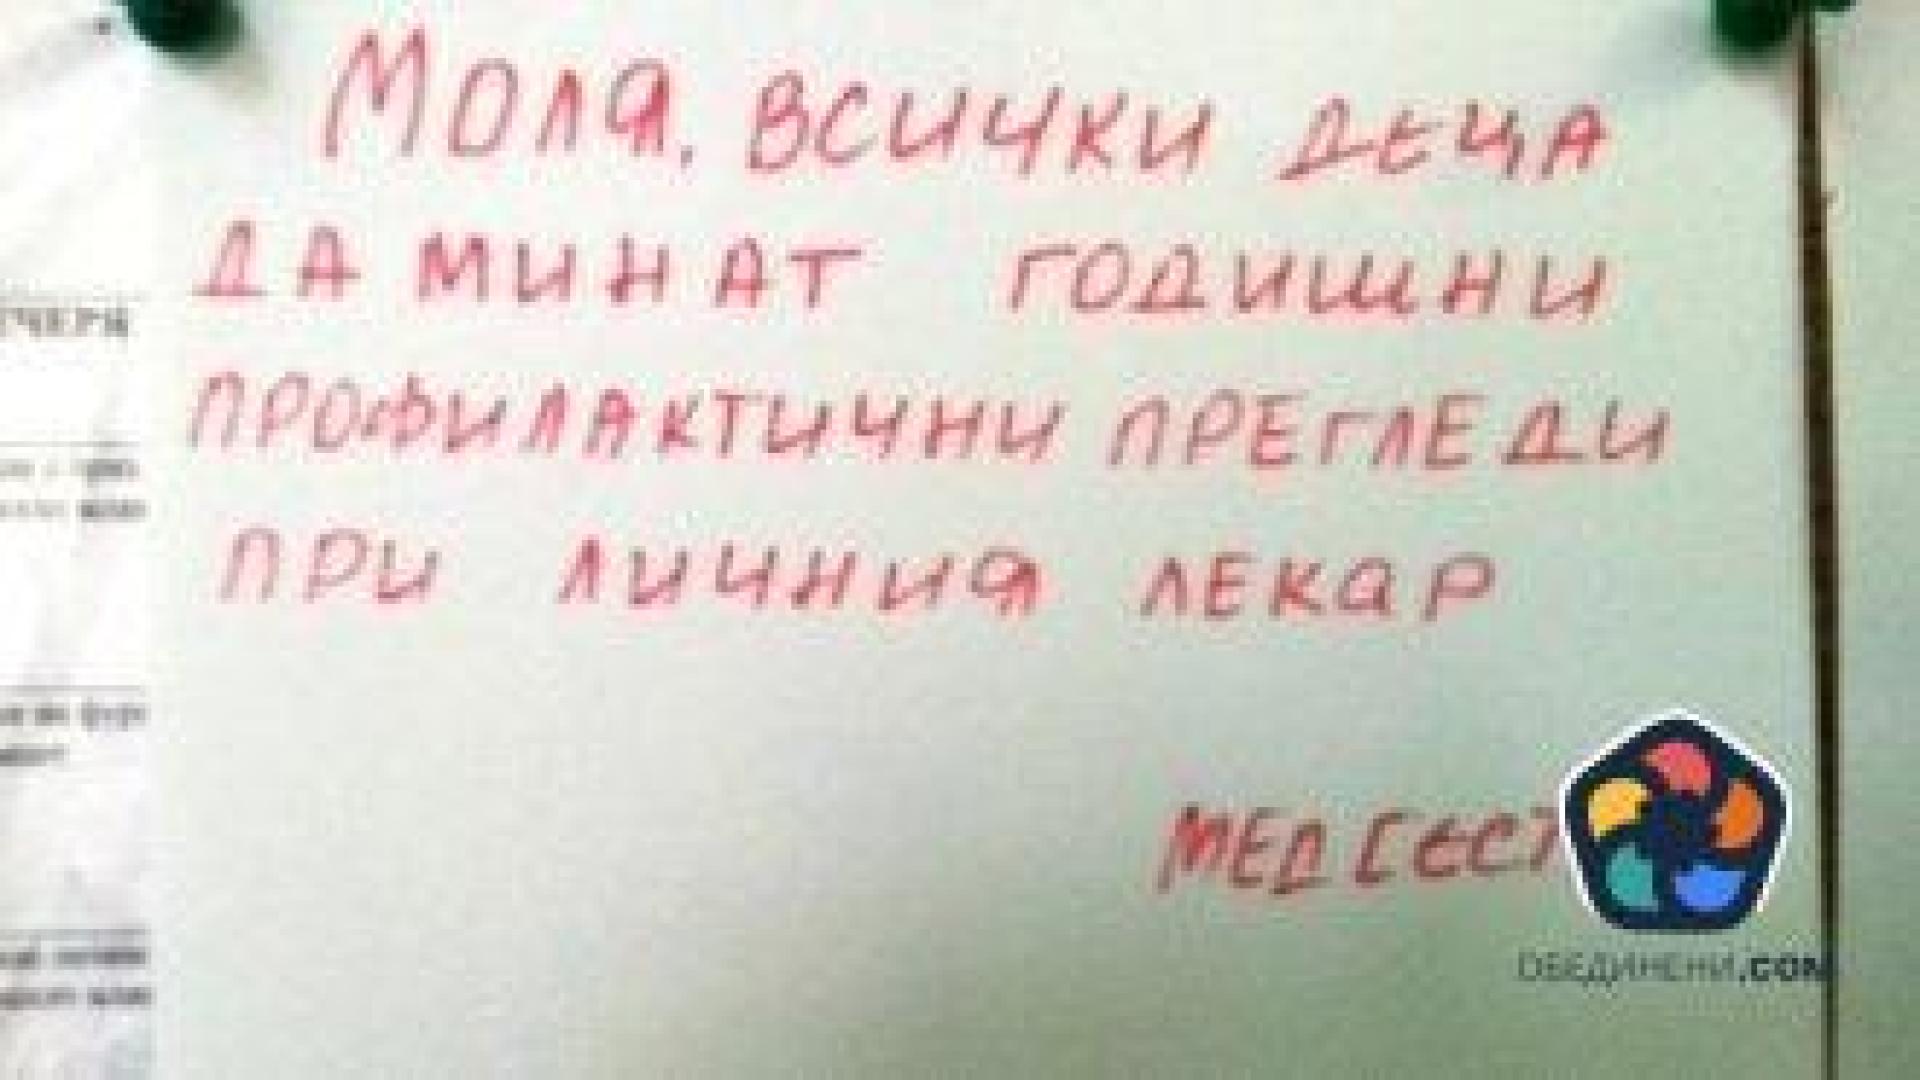 Моля, всички деца
да минат годишни
профилактични прегледи
при личния лекар
Обединени.com